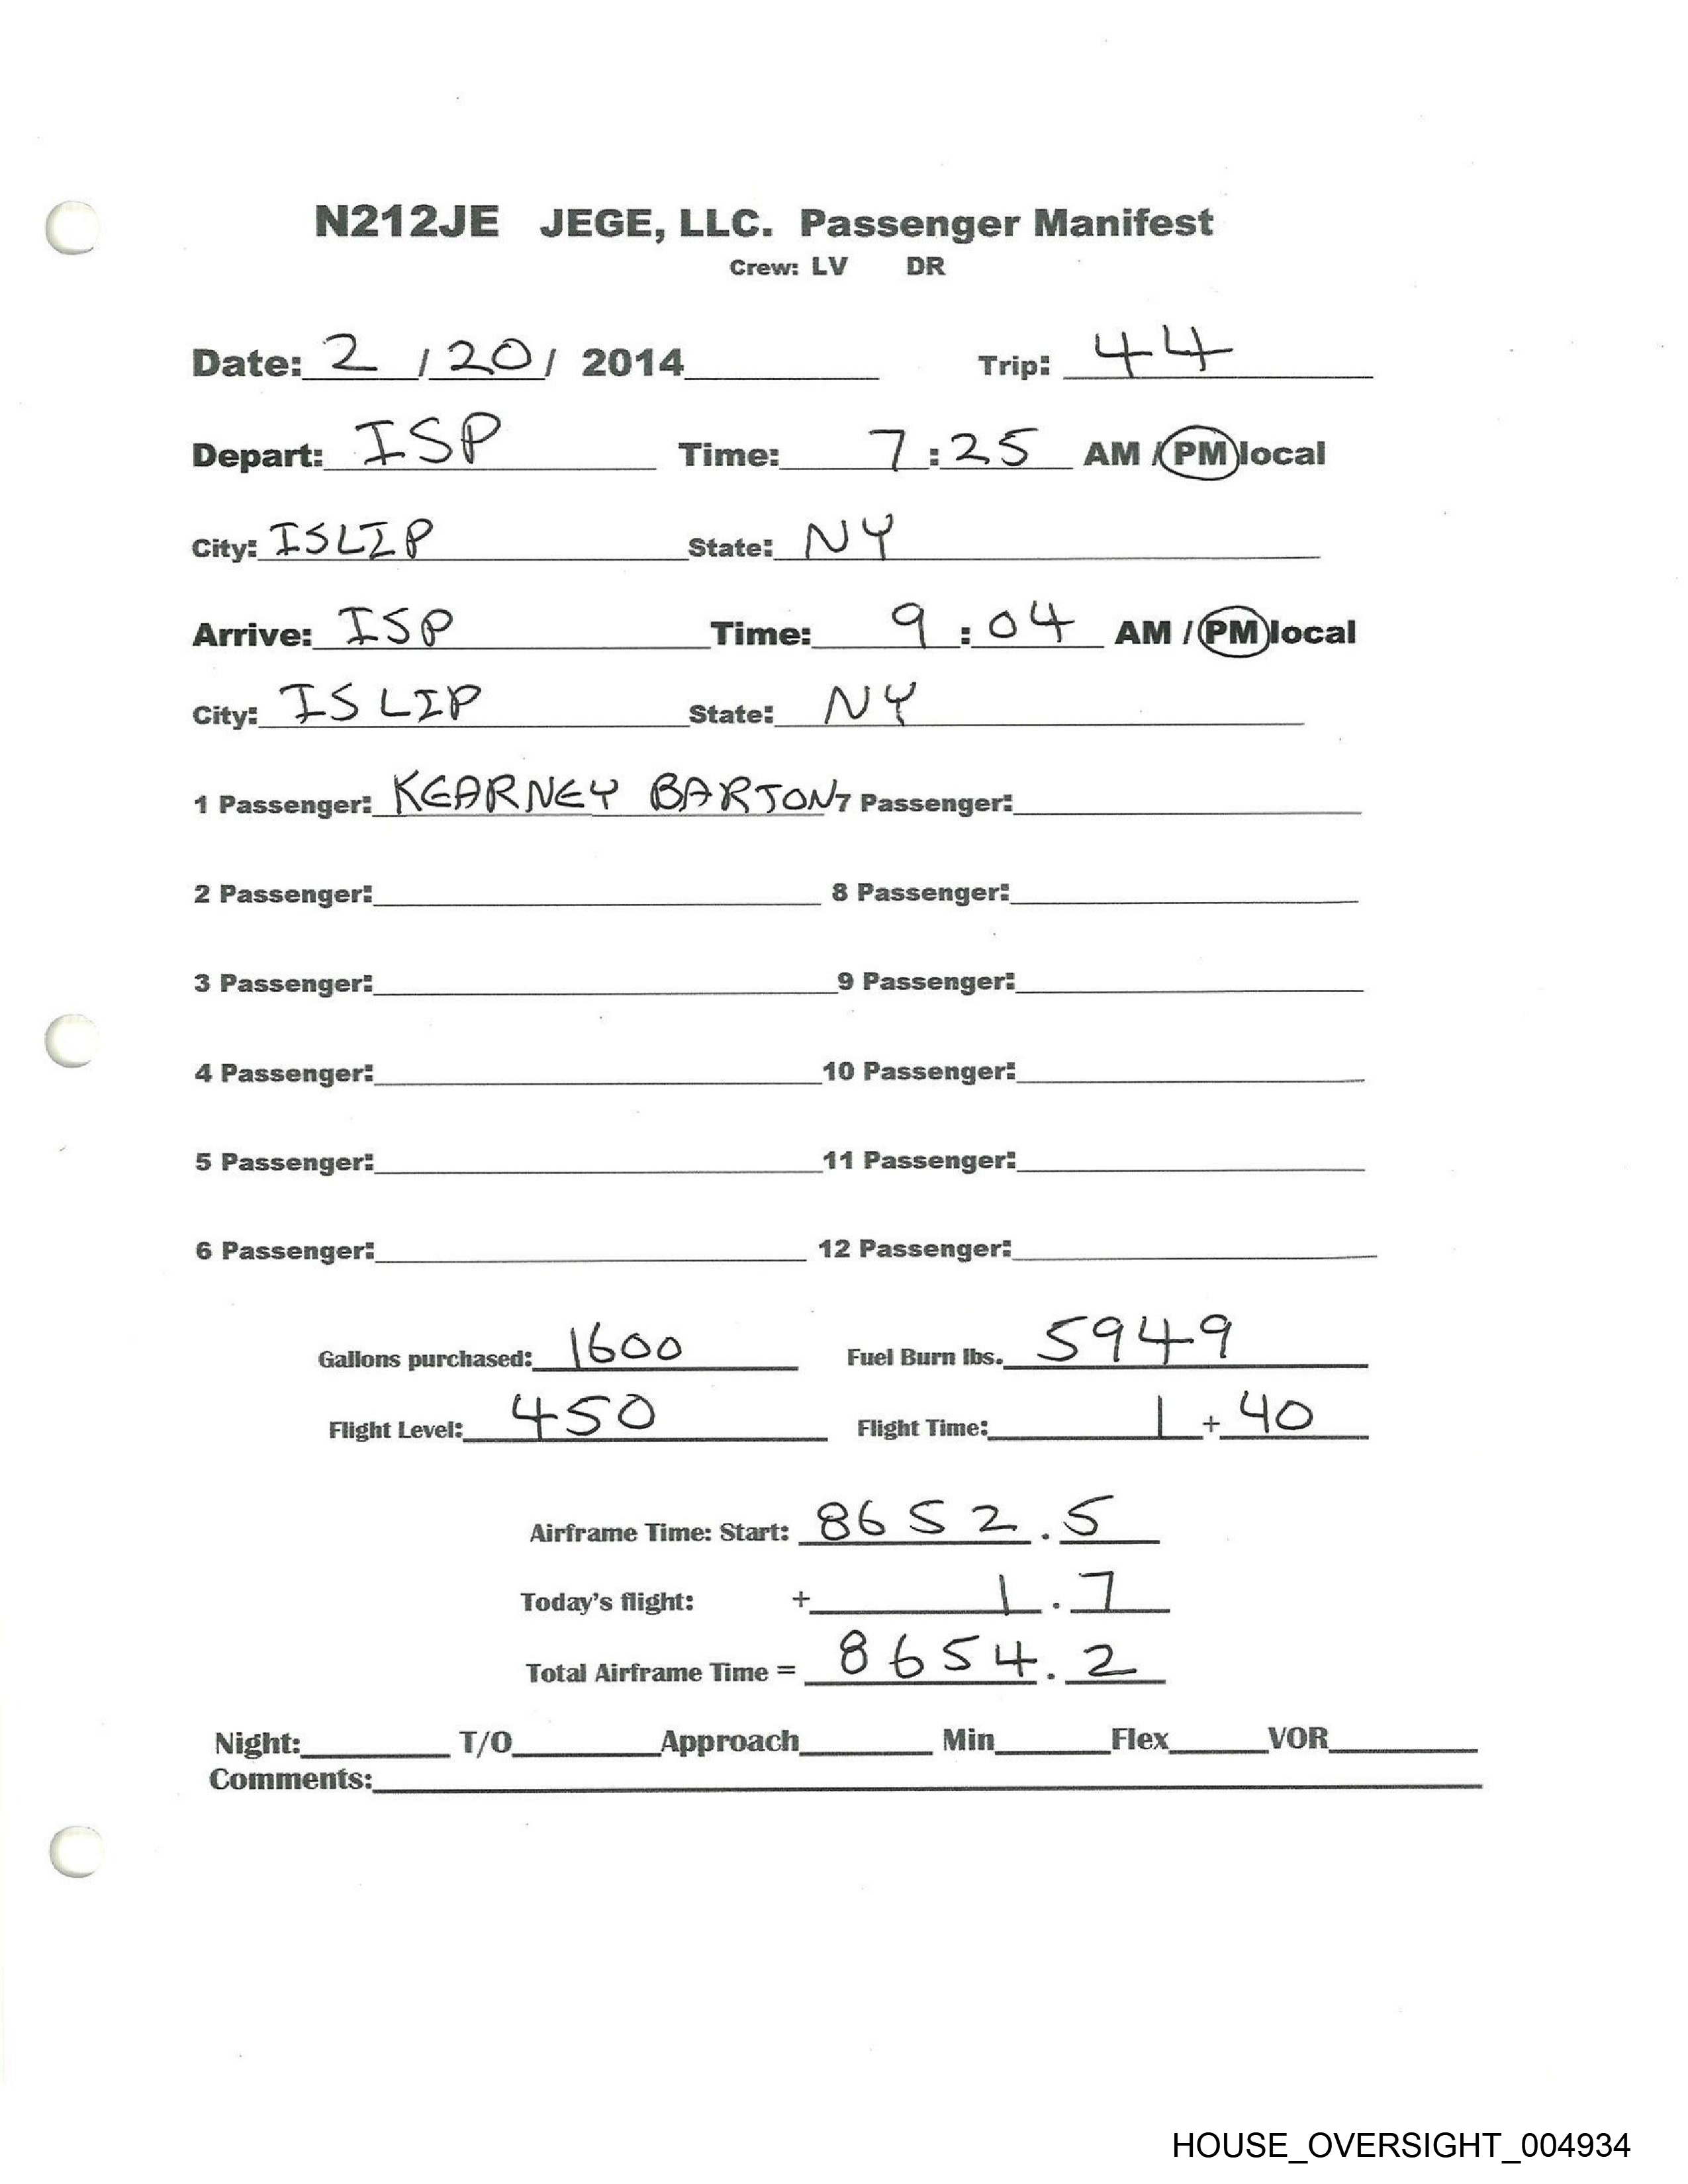 N212JE JEGE, LLC. Passenger Manifest
Crew: LV DR
Date: 2 / 20 / 2014 Trip: 44
Depart: ISP Time: 7:25 AM / PM local
City: ISLIP State: NY
Arrive: ISP Time: 9:04 AM / PM local
City: ISLIP State: NY
1 Passenger: KEARNEY BARTON 7 Passenger:
2 Passenger: 8 Passenger:
3 Passenger: 9 Passenger:
4 Passenger: 10 Passenger:
5 Passenger: 11 Passenger:
6 Passenger: 12 Passenger:
Gallons purchased: 1600 Fuel Burn lbs. 5949
Flight Level: 450 Flight Time: 1 + 40
Airframe Time: Start: 8652.5
Today's flight: + 1.7
Total Airframe Time = 8654.2
Night: T/O Approach Min Flex VOR
Comments:
HOUSE_OVERSIGHT_004934